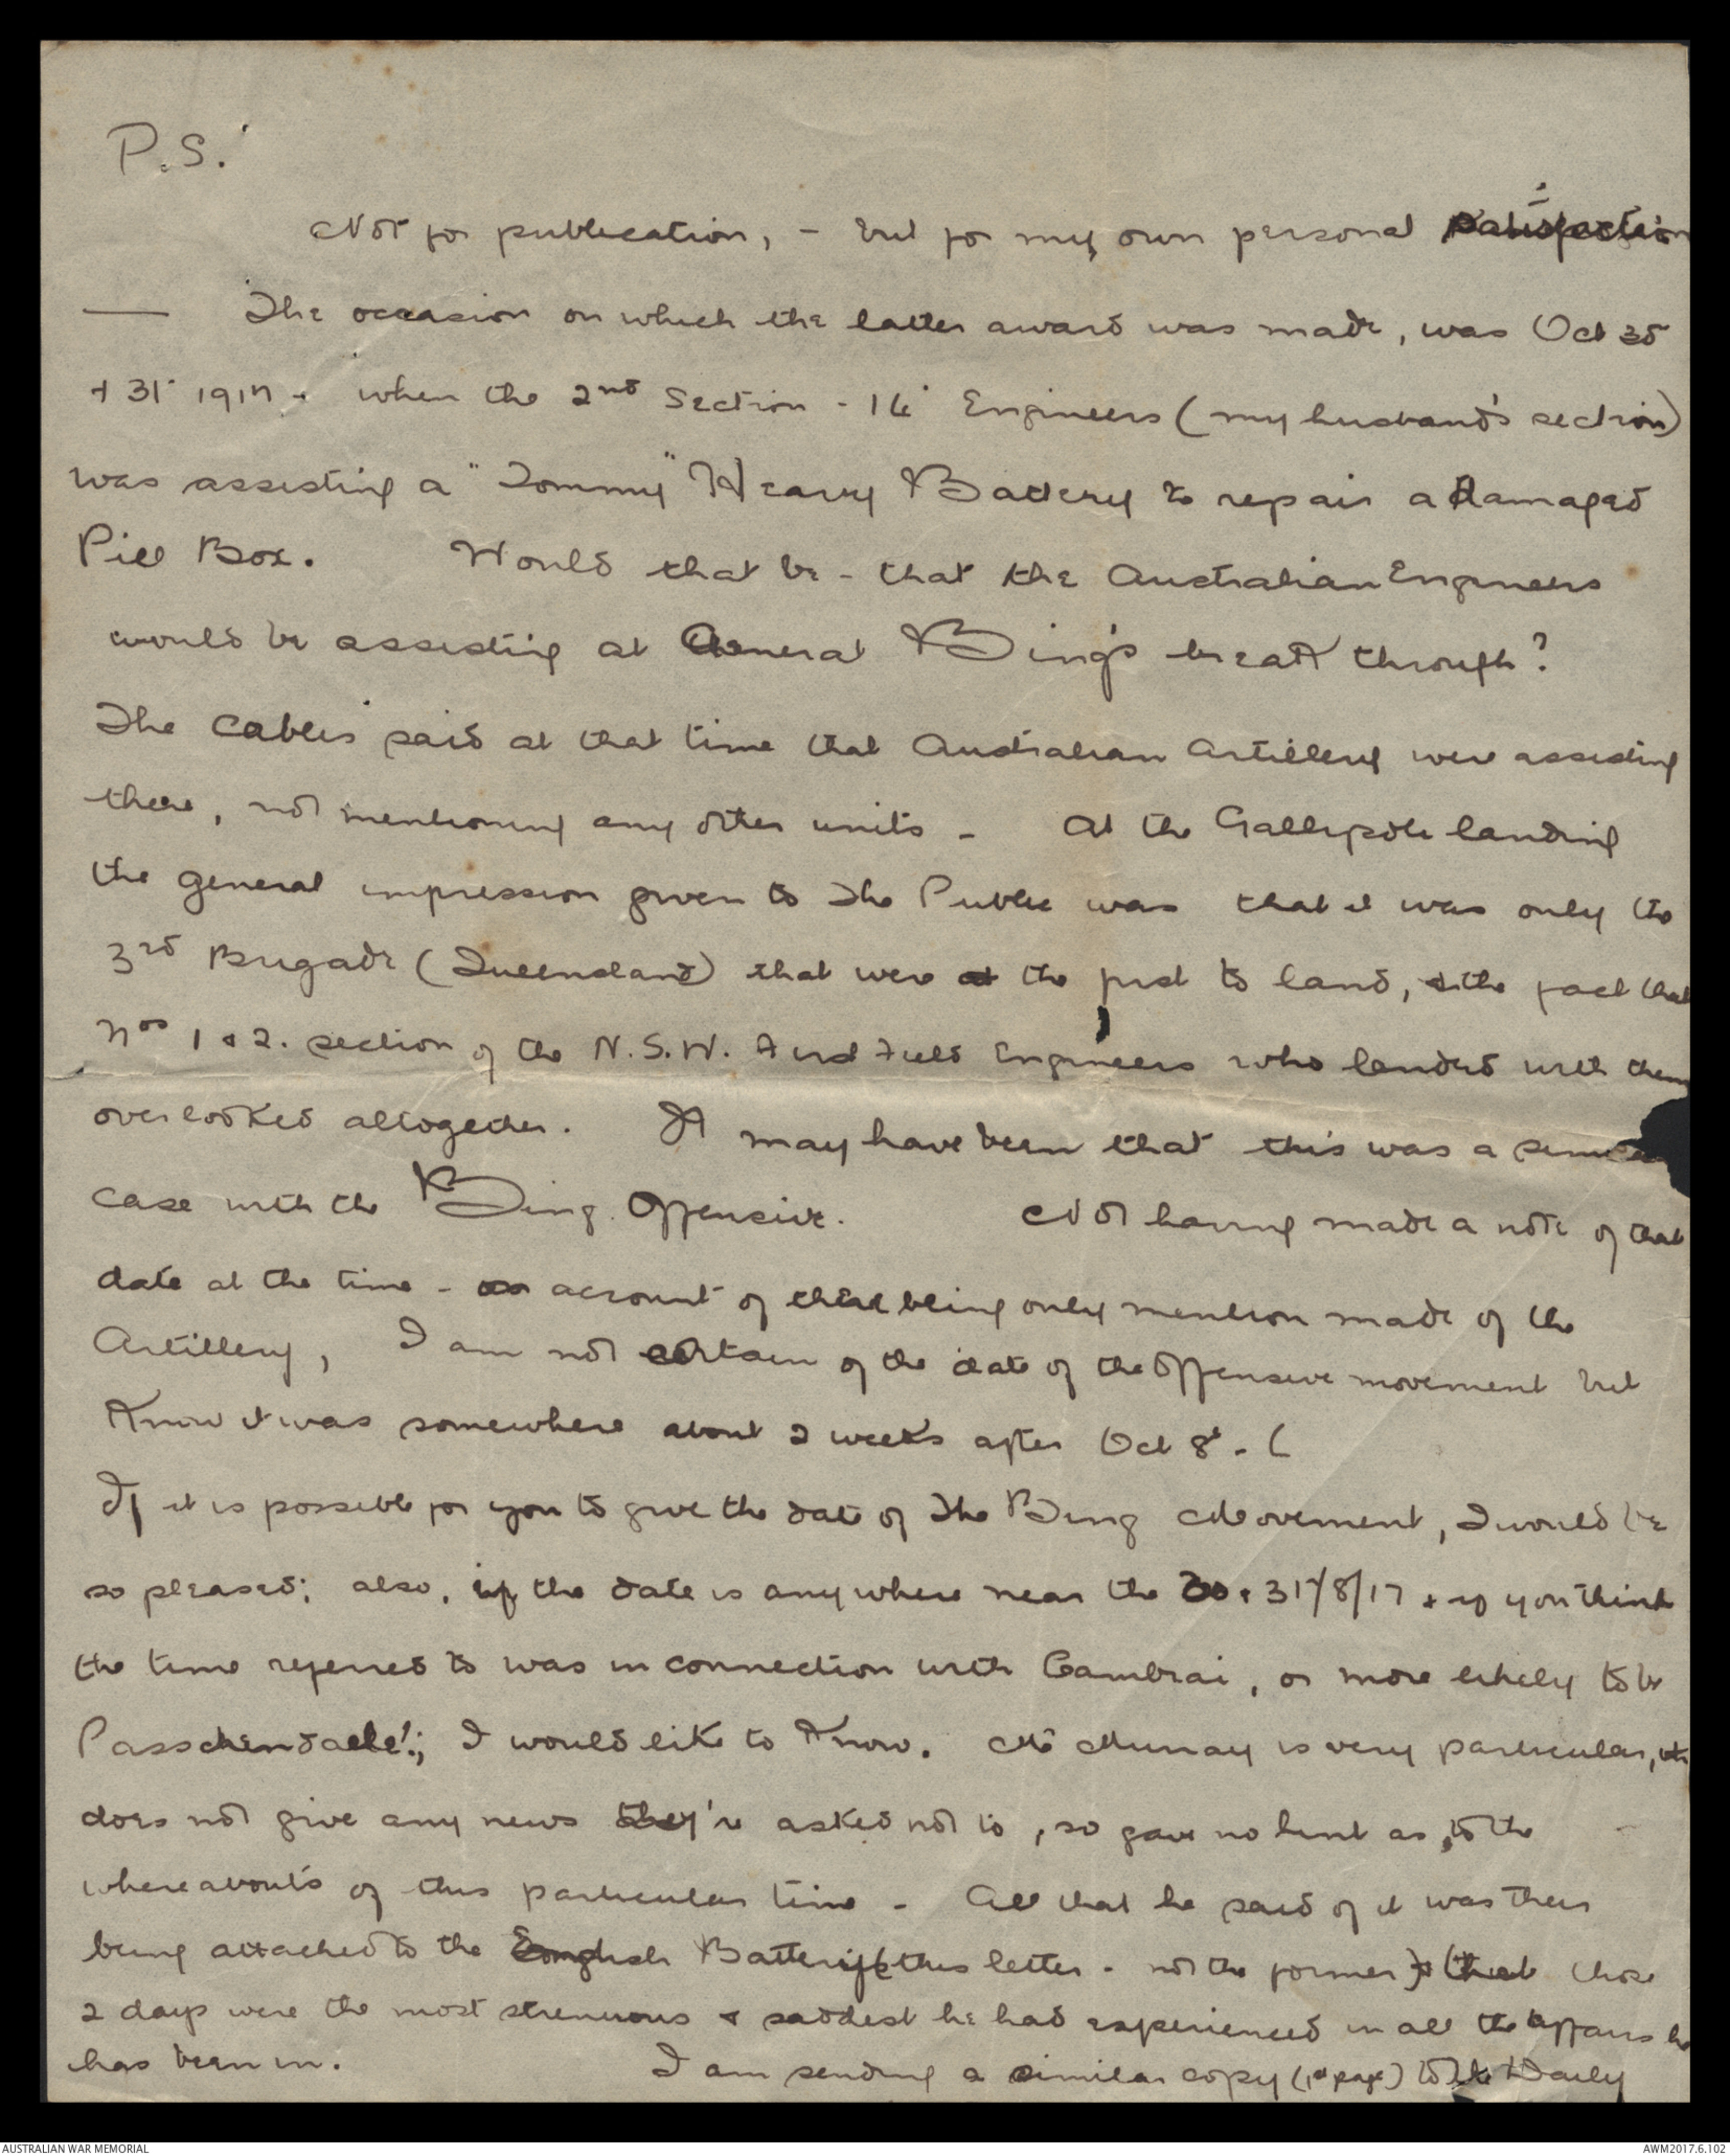 P.S.
Not for publication, - but for my own personal satisfaction
— The occasion on which the latter award was made, was Oct 30
+ 31st 1917 - when the 2nd Section - 14th Engineers (my husband's section)
was assisting a "Tommy" Heavy Battery to repair a damaged
Pill Box. Would that be - that the Australian Engineers
would be assisting at General Bing's break through?
The Cables said at that time that Australian Artillery were assisting
there, not mentioning any other units - At the Gallipoli landing
the general impression given to the Public was that it was only the
3rd Brigade (Queensland) that were the first to land, & the fact that
Nos 1 & 2. section of the N.S.W. First Field Engineers who landed with them
overlooked altogether. It may have been that this was a
case with the Bing Offensive. Not having made a note of that
date at the time - on account of there being only mention made of the
Artillery, I am not certain of the date of the offensive movement but
know it was somewhere about 2 weeks after Oct 8th. (
If it is possible for you to give the date of the Bing Movement, I would be
so pleased; also, if the date is anywhere near the 30 & 31st/8/17 & if you think
the time referred to was in connection with Cambrai, or more likely to be
Passchendaele!; I would like to know. Mr Murray is very particular, &
does not give any news they're asked not to, so gave no hint as to the
whereabouts of this particular time - All that he said of it was their
being attached to the English Battery (this letter - not the former) & that those
2 days were the most strenuous & saddest he had experienced in all the affairs he
has been in. I am sending a similar copy (1st page) to the Daily
AUSTRALIAN WAR MEMORIAL
AWM2017.6.102